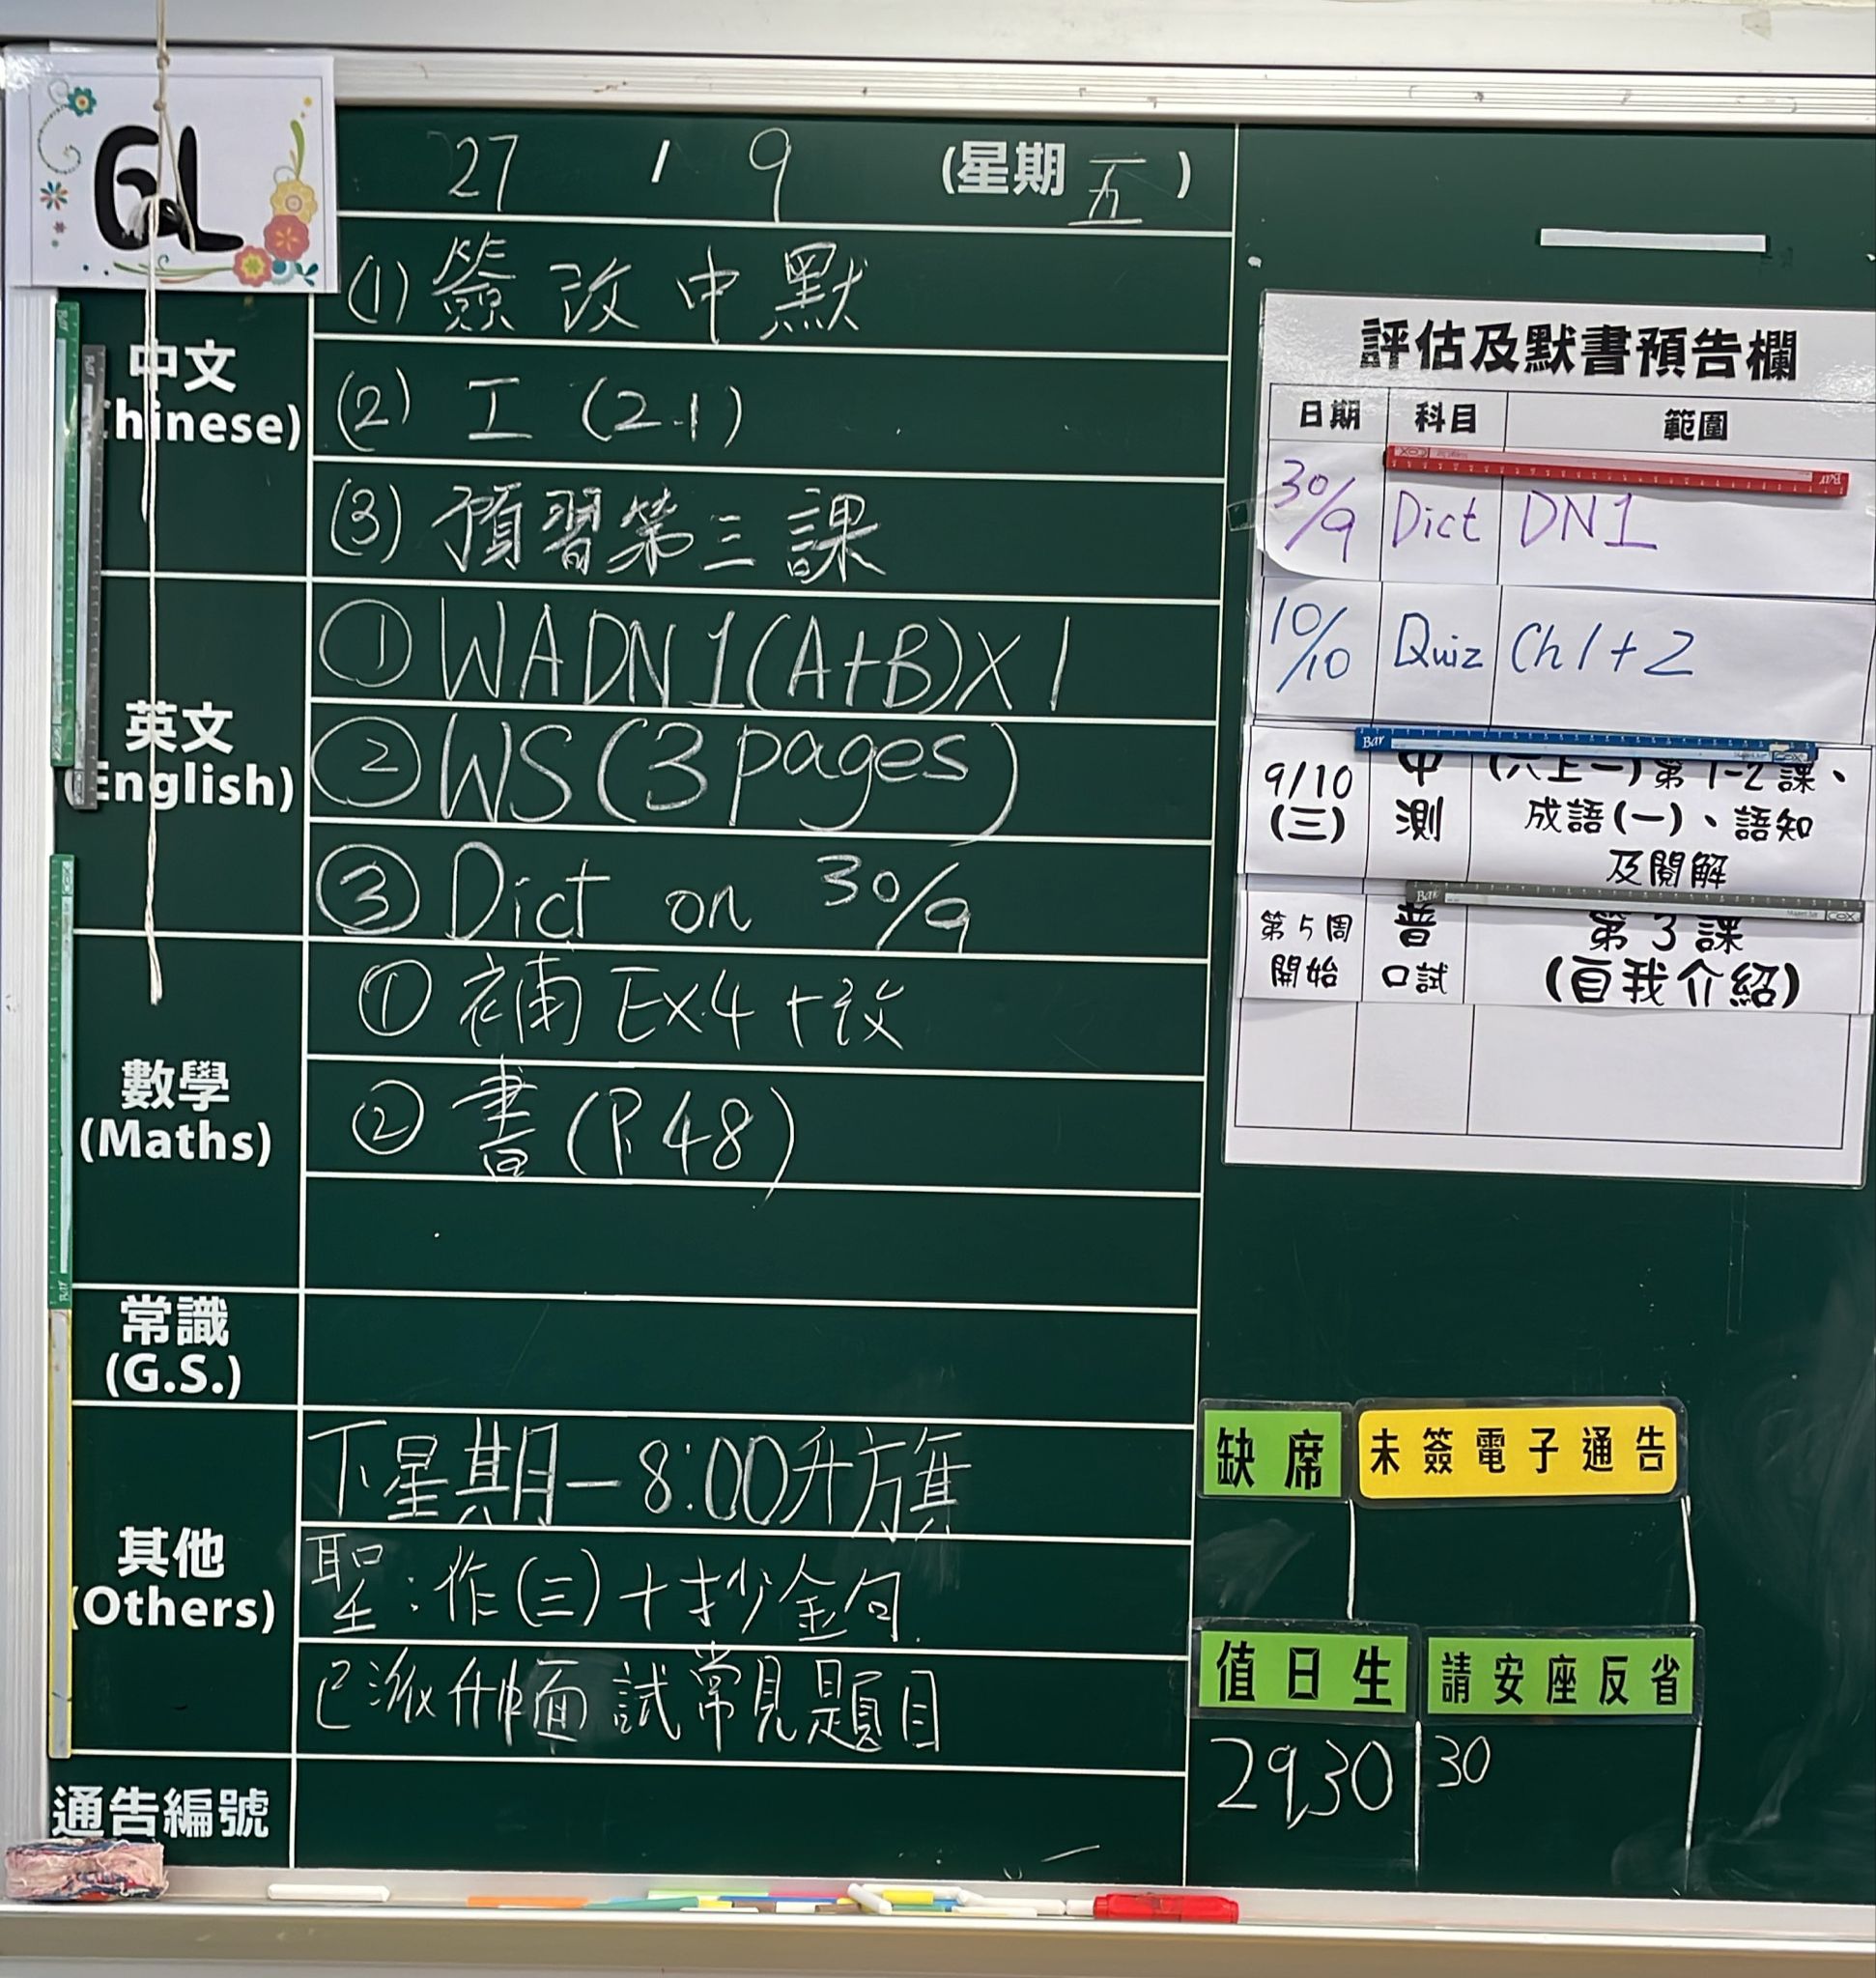 6L
27 / 9 (星期五)
中文
(Chinese)
(1) 簽改中默
(2) 工 (2.1)
(3) 預習第三課
英文
(English)
① WADN1(A+B)X1
② WS (3 pages)
③ Dict on 30/9
數學
(Maths)
① 補 Ex4 + 改
② 書 (P.48)
常識
(G.S.)
其他
(Others)
下星期一 8:00升旗
聖:作(三)+抄金句
已派升中面試常見題目
通告編號
評估及默書預告欄
日期 科目 範圍
30/9 Dict DN1
10/10 Quiz Ch1+2
9/10 中 (六上一)第1-2課、
(三) 測 成語(一)、語知
及閱解
第5周 普 第3課
開始 口試 (自我介紹)
缺席 未簽電子通告
值日生 請安座反省
29,30 30